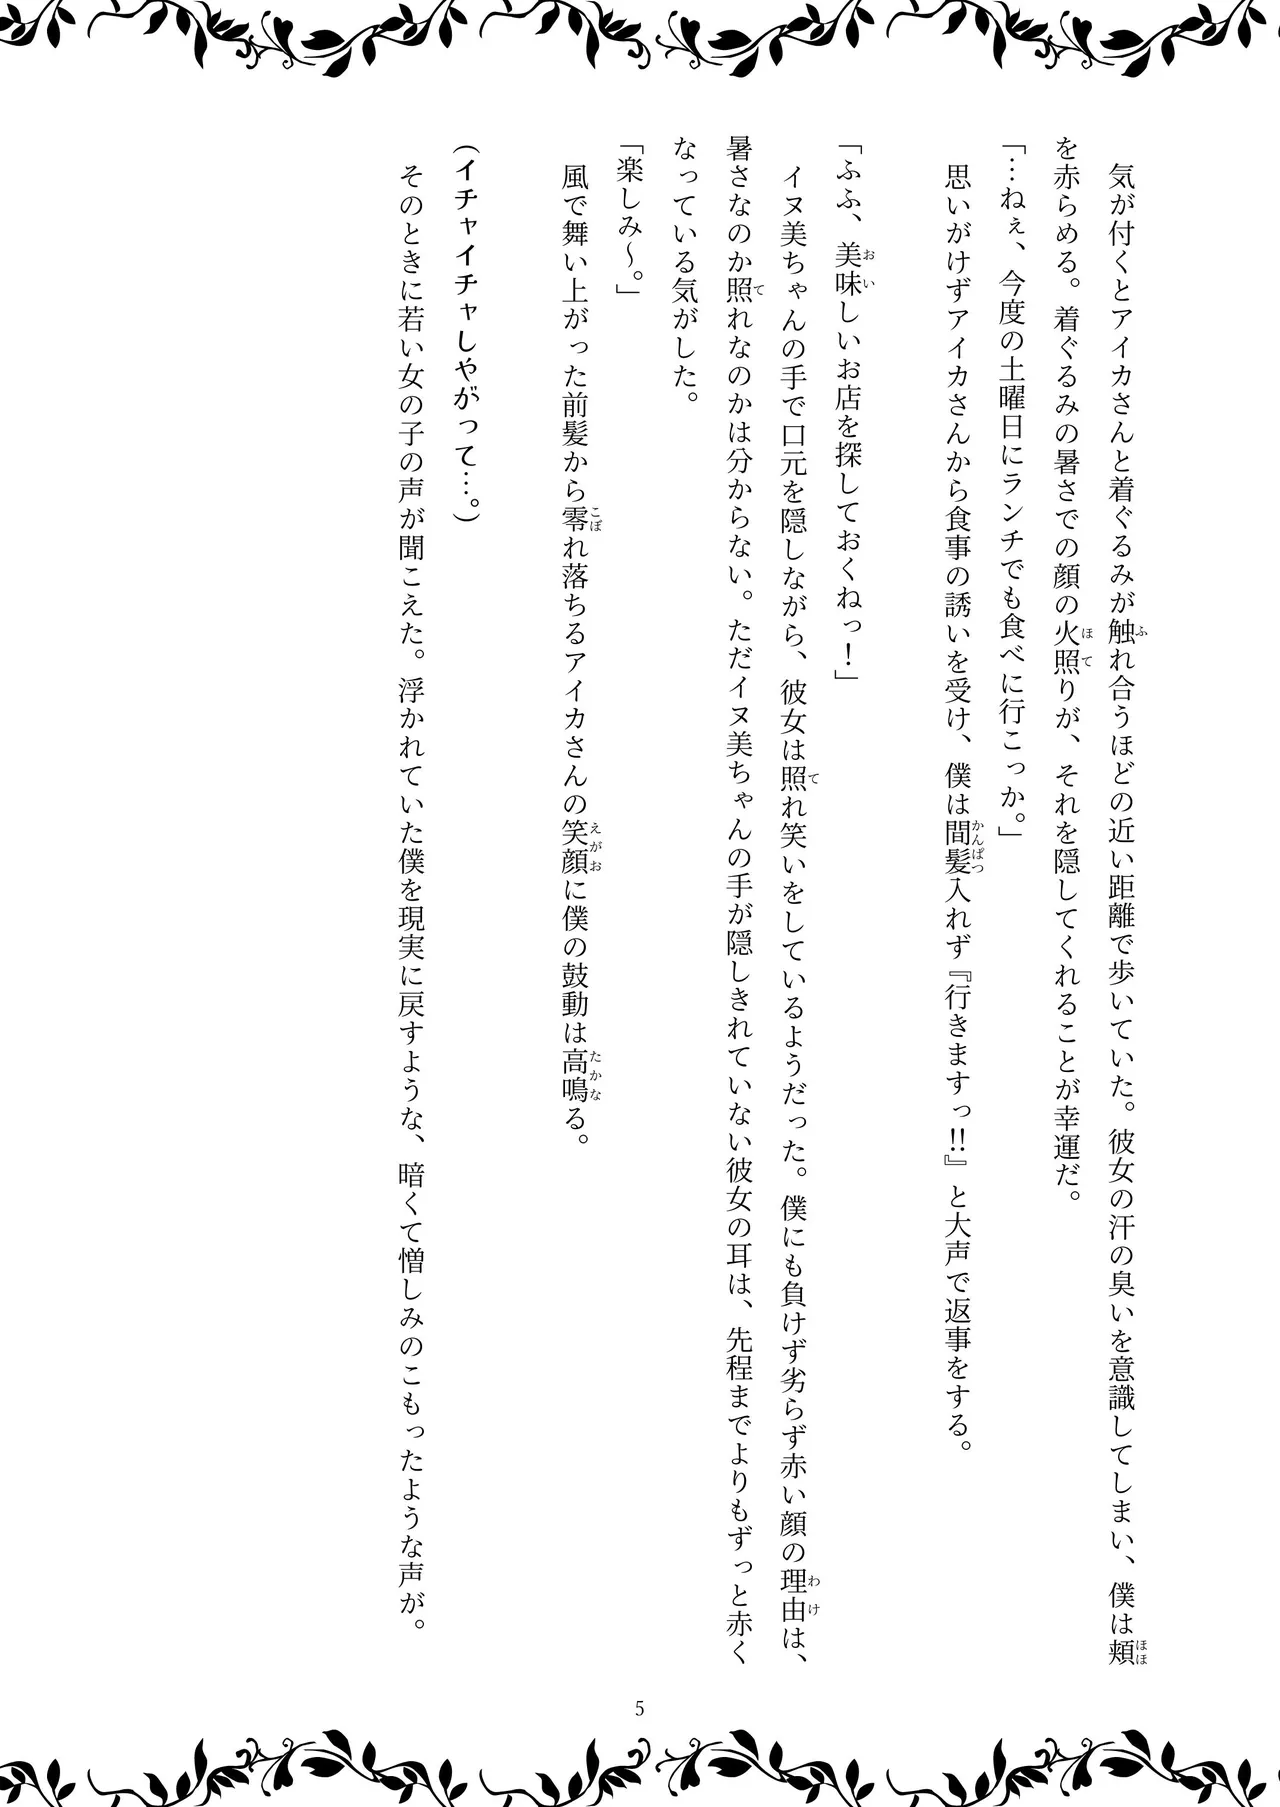 気が付くとアイカさんと着ぐるみが触れ合うほどの近い距離で歩いていた。彼女の汗の臭いを意識してしまい、僕は頬
を赤らめる。着ぐるみの暑さでの顔の火照りが、それを隠してくれることが幸運だ。
「…ねぇ、今度の土曜日にランチでも食べに行こっか。」
思いがけずアイカさんから食事の誘いを受け、僕は間髪入れず『行きますっ!!』と大声で返事をする。
「ふふ、美味しいお店を探しておくねっ！」
イヌ美ちゃんの手で口元を隠しながら、彼女は照れ笑いをしているようだった。僕にも負けず劣らず赤い顔の理由は、
暑さなのか照れなのかは分からない。ただイヌ美ちゃんの手が隠しきれていない彼女の耳は、先程までよりもずっと赤く
なっている気がした。
「楽しみ～。」
風で舞い上がった前髪から零れ落ちるアイカさんの笑顔に僕の鼓動は高鳴る。
(イチャイチャしやがって…。)
そのときに若い女の子の声が聞こえた。浮かれていた僕を現実に戻すような、暗くて憎しみのこもったような声が。
5